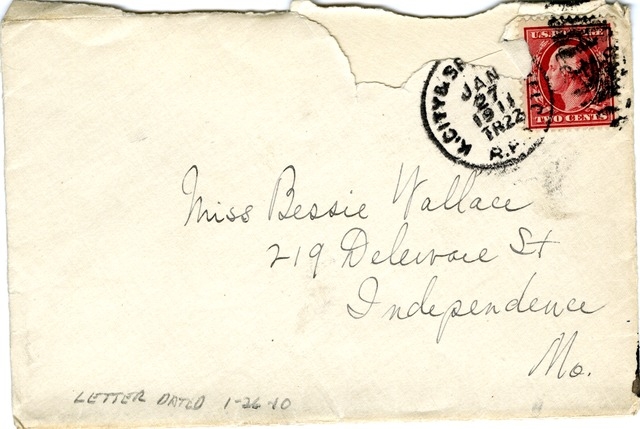 U.S. POSTAGE
K. CITY & SP
JAN
27
1911
TR22
R.P.
TWO CENTS
Miss Bessie Wallace
219 Deleware St
Independence
Mo.
LETTER DATED 1-26-10